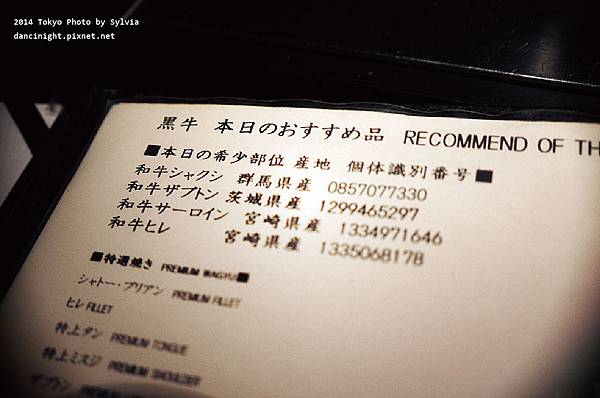 2014 Tokyo Photo by Sylvia
dancinight.pixnet.net
黒牛 本日のおすすめ品 RECOMMEND OF TH
■本日の希少部位 産地 個体識別番号■
和牛シャクシ 群馬県産 0857077330
和牛ザブトン 茨城県産 1299465297
和牛サーロイン 宮崎県産 1334971646
和牛ヒレ 宮崎県産 1335068178
■特選焼き PREMIUM WAGYU■
シャトー・ブリアン PREMIUM FILLET
ヒレ FILLET
特上タン PREMIUM TONGUE
特上ミスジ PREMIUM SHOULDER
ザブトン